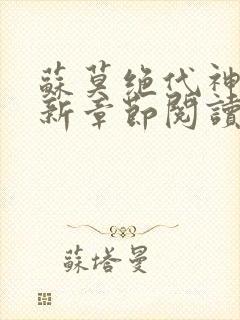 蘇莫絕代神
新章節閱讀
蘇塔曼